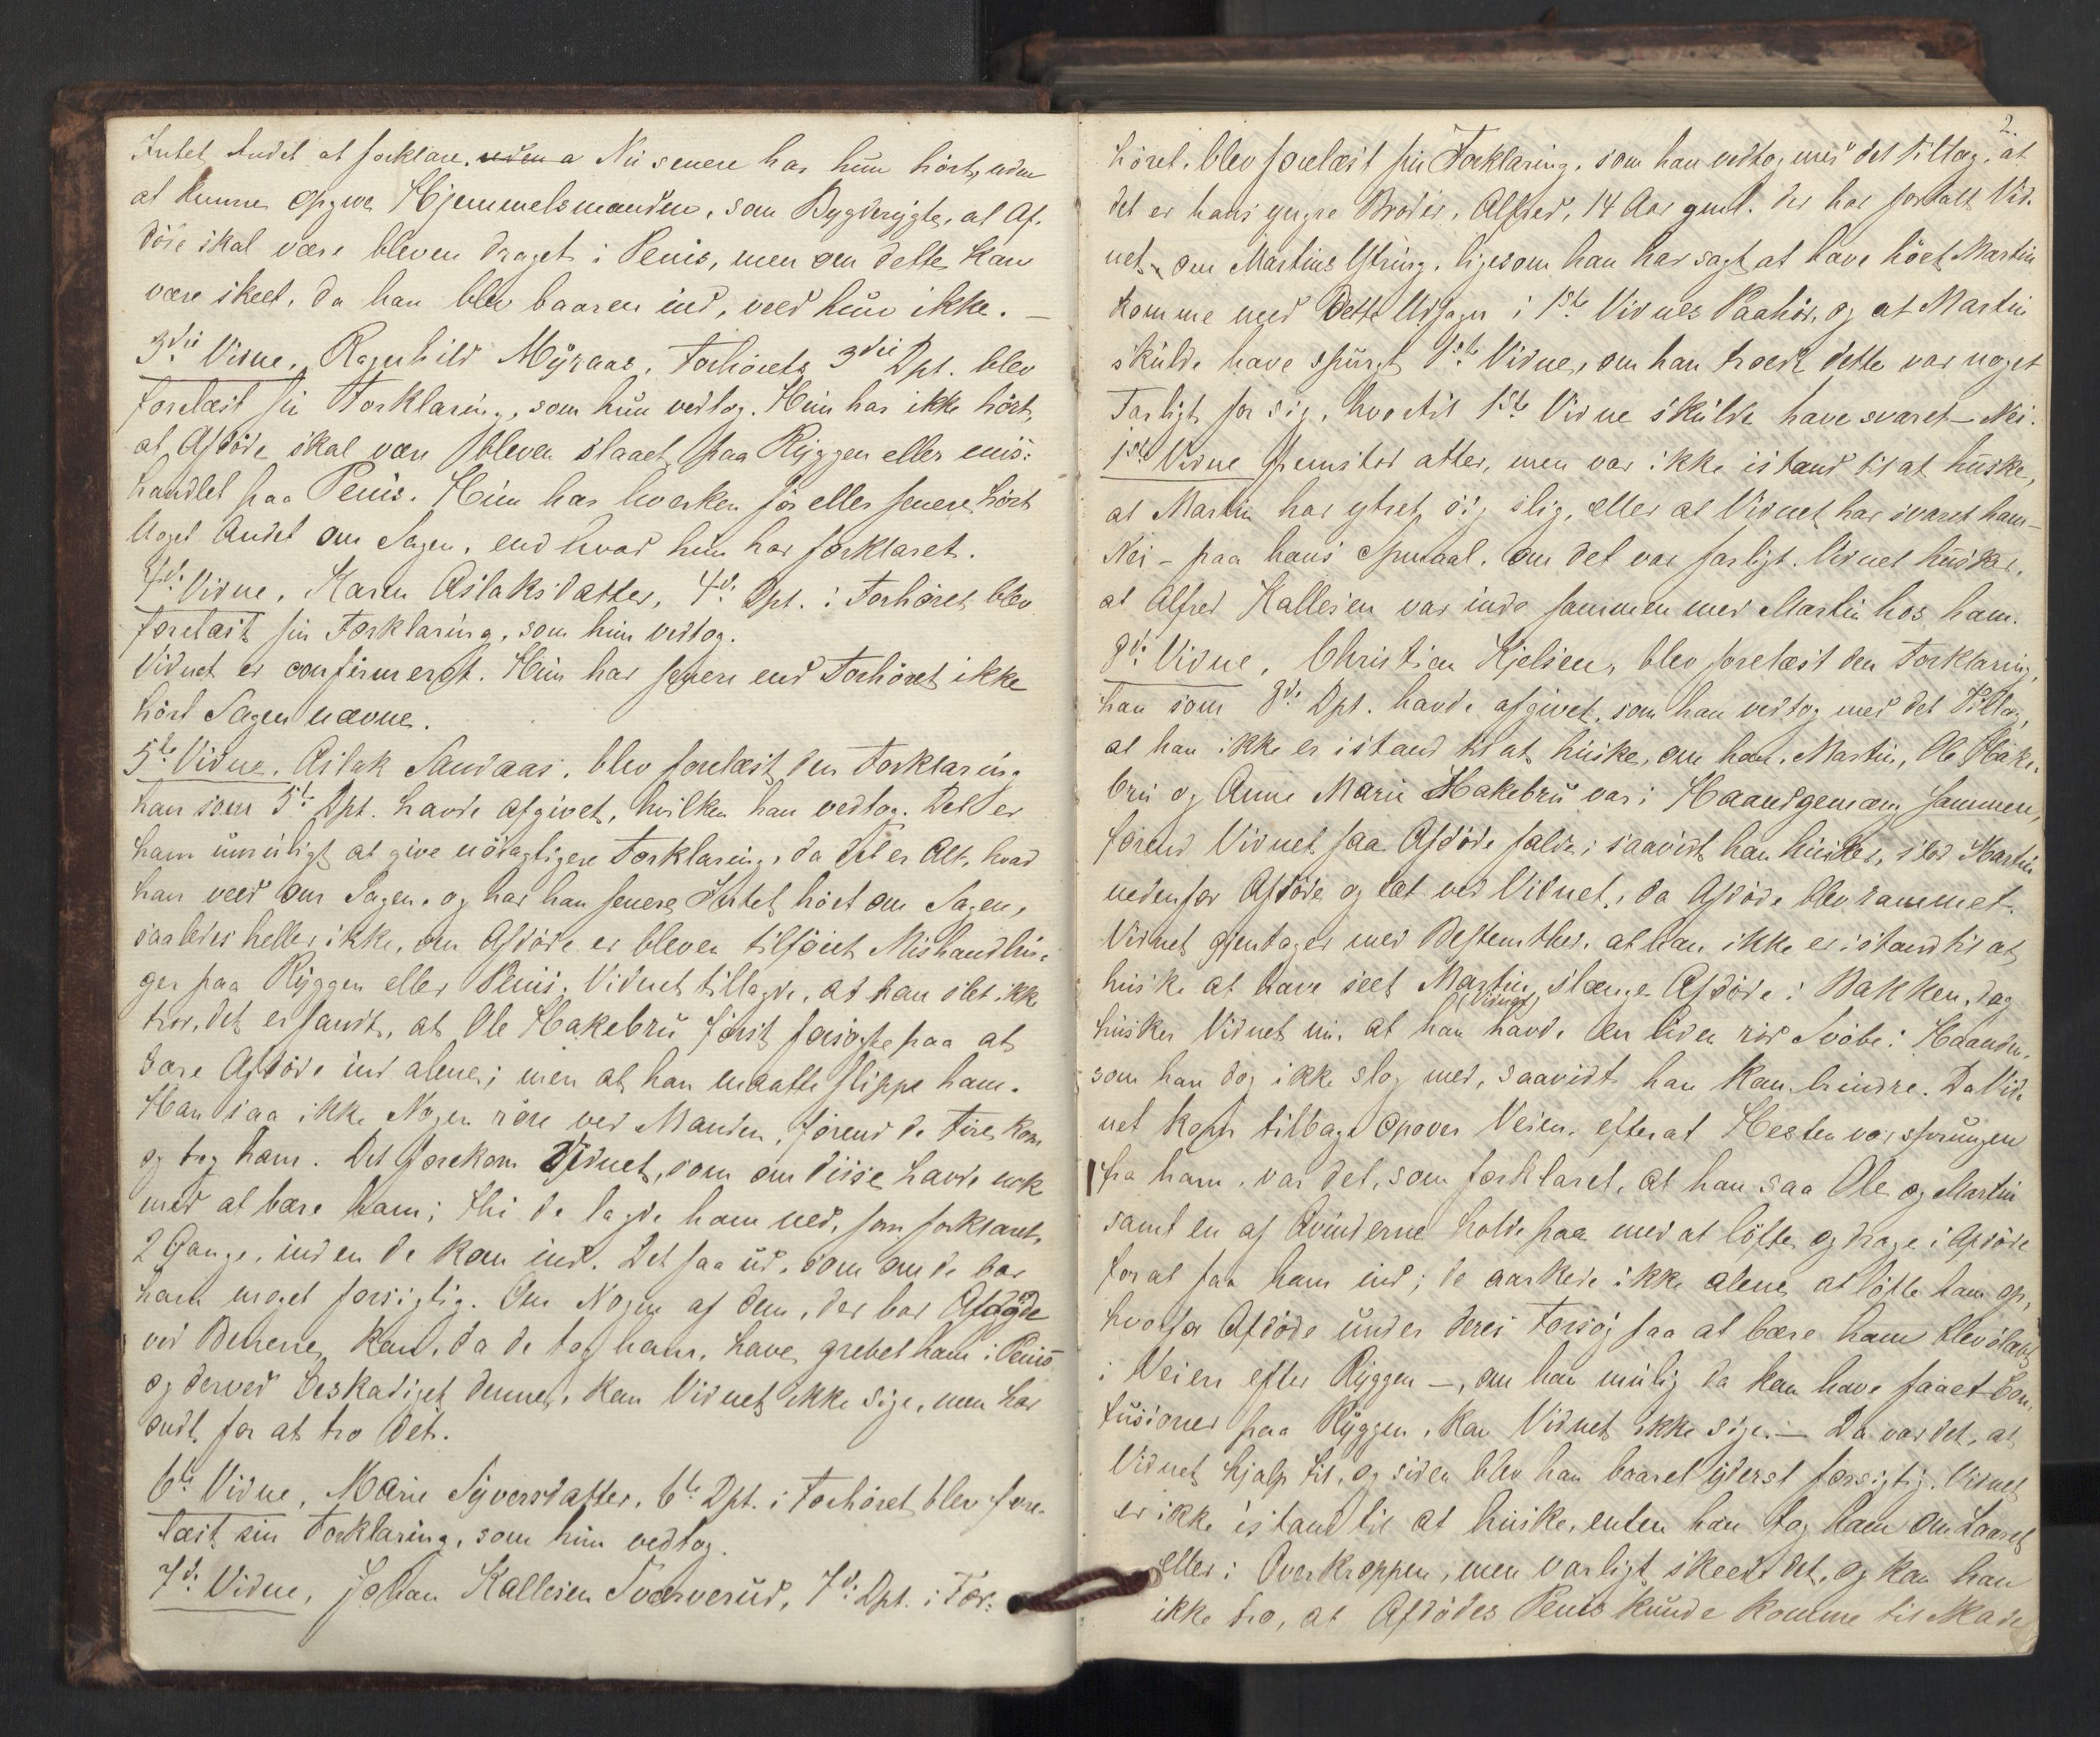 Intet Andet at forklare. uden a Nu senere har hun hört, uden
at kunne opgive Hjemmelsmanden, som Bygderygte, at Af-
döde skal være bleven draget i Penis, men om dette kan
være skeet, da han blev baaren ind, veed hun ikke. —
3die Vidne, Ragnhild Myraas, Forhörets 3die Dpt. blev
forelæst sin Forklaring, som hun vedtog. Hun har ikke hört,
at Afdöde skal være bleven slaaet paa Ryggen eller mis-
handlet paa Penis. Hun har hverken för eller senere hört
Noget Andet om Sagen, end hvad hun har forklaret.
4de Vidne, Karen Aslaksdatter, 4de Dpt. i Forhöret blev
forelæst sin Forklaring, som hun vedtog.
Vidnet er confirmeret. Hun har senere end Forhöret ikke
hört Sagen nævne.
5te Vidne, Aslak Sandaas, blev forelæst den Forklaring
han som 5te Dpt. havde afgivet, hvilken han vedtog. Det er
ham umuligt at give nöiagtigere Forklaring, da det er Alt, hvad
han veed om Sagen, og har han senere Intet hört om Sagen,
saaledes heller ikke, om Afdöde er bleven tilföiet Mishandlin-
ger paa Ryggen eller Penis. Vidnet tillagde, at han slet ikke
tror, det er sandt, at Ole Hakebru först forsögte paa at
bære Afdöde ind alene; men at han maatte slippe ham.
Han saa ikke Nogen röre ved Manden, förend de Fire kom
og tog ham. Det forekom Vidnet, som om disse havde nok
med at bære ham; thi de lagde ham ned, som forklaret,
2 Gange, inden de kom ind. Det saa ud, som om de bar
ham meget forsigtig. Om Nogen af dem, der bar Afdöde
ved Benene, kan, da de tog ham, have grebet ham i Penis
og derved beskadiget denne, kan Vidnet ikke sige, men har
ondt for at tro det.
6te Vidne, Marie Syversdatter, 6te Dpt. i Forhöret blev fore-
læst sin Forklaring, som hun vedtog.
7de Vidne, Johan Kallesen Tværverud, 7de Dpt. i For-
2.
höret, blev forelæst sin Forklaring, som han vedtog med det tillæg, at
det er hans yngre Broder, Alfred, 14 Aar gml. der har fortalt Vid-
net om Martins Ytring, ligesom han har sagt at have hört Martin
komme med dette Udsagn i 1ste Vidnes Paahör, og at Martin
skulde have spurgt 1ste Vidne, om han troede dette var noget
Farligt for sig, hvortil 1ste Vidne skulde have svaret – Nei.
1ste Vidne fremstod atter, men var ikke istand til at huske,
at Martin har ytret sig slig, eller at Vidnet har svaret ham –
Nei – paa hans Spørsmaal, om det var farligt. Vidnet husker,
at Alfred Kallesen var inde sammen med Martin hos ham.
8de Vidne, Christian Kjelsen, blev forelæst den Forklaring,
han som 8de Dpt. havde afgivet, som han vedtog med det Tillæg,
at han ikke er istand til at huske, om han, Martin, Ole Hake-
bru og Anne Marie Hakebru var i Haandgemæng sammen,
förend Vidnet saa Afdöde falde; saavidt han husker, stod Martin
nedenfor Afdöde og tæt ved Vidnet, da Afdöde blev rammet.
Vidnet gjentager med Bestemthed, at han ikke er istand til at
huske at have seet Martin slænge Afdöde i Bakken, dog
husker Vidnet nu, at han (Vidnet) havde en liden röd Svöbe i Haanden,
som han dog ikke slog med, saavidt han kan erindre. Da Vid-
net kom tilbage opover Veien, efterat Hesten var sprungen
fra ham, var det, som forklaret, at han saa Ole og Martin
samt en af Qvinderne holde paa med at löfte og drage i Afdöde
for at faa ham ind; de aarkede ikke alene at löfte ham op,
hvorfor Afdöde under deres Forsög paa at bære ham blev slæbt
i Veien efter Ryggen –, om han mulig da kan have faaet Con-
tusioner paa Ryggen, kan Vidnet ikke sige. – Da var det, at
Vidnet hjalp til, og siden blev han baaret yderst forsigtig. Vidnet
er ikke istand til at huske, enten han tog ham om Laaret
eller i Overkroppen, men varligt skeede det, og kan han
ikke tro, at Afdödes Penis kunde komme til Skade